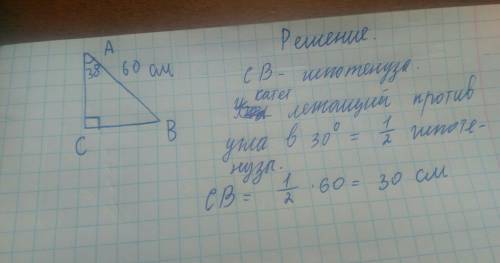 A
38
60 см
C
B
Решение.
CB - гипотенуза.
катет
лежащий против
угла в 30° = 1/2 гипоте-
нузы.
CB = 1/2 · 60 = 30 см